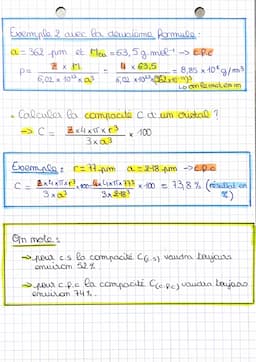 Exemple 2 avec la deuxième formule :
a = 362 pm et Mcu = 63,5 g.mol⁻¹ → C.F.C
ρ = Z × M / 6,02 × 10²³ × a³ = 4 × 63,5 / 6,02 × 10²³ × (362×10⁻¹²)³ = 8,85 × 10⁶ g/m³
↳ on le met en m
• Calculer la compacité C d'un cristal ?
→ C = Z × 4 × π × r³ / 3 × a³ × 100
Exemple : r = 77 pm a = 218 pm → C.F.C
C = Z × 4 × π × r³ / 3 × a³ × 100 = 4 × 4 × π × 77³ / 3 × 218³ × 100 = 73,8 % (résultat en %)
On note :
→ pour c.s la compacité C(c.s) vaudra toujours
environ 52 %.
→ pour c.f.c la compacité C(c.f.c) vaudra toujours
environ 74 %.